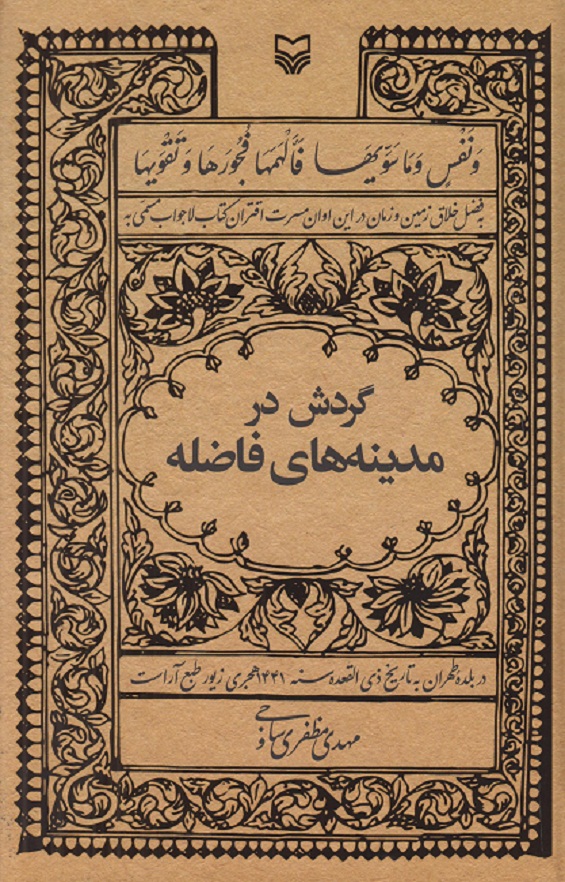 وَنَفْسٍ وَمَا سَوَّیٰهَا فَأَلْهَمَهَا فُجُورَهَا وَتَقْوٰیهَا
به فضل خلاق زمین و زمان در این اوان مسرت اقتران کتاب لاجواب مسمی به
گردش در
مدینه‌های فاضله
در بلده طهران به تاریخ ذی القعده سنه ۱۴۴۱ هجری زیور طبع آراست
مهدی مظفری ساوجی